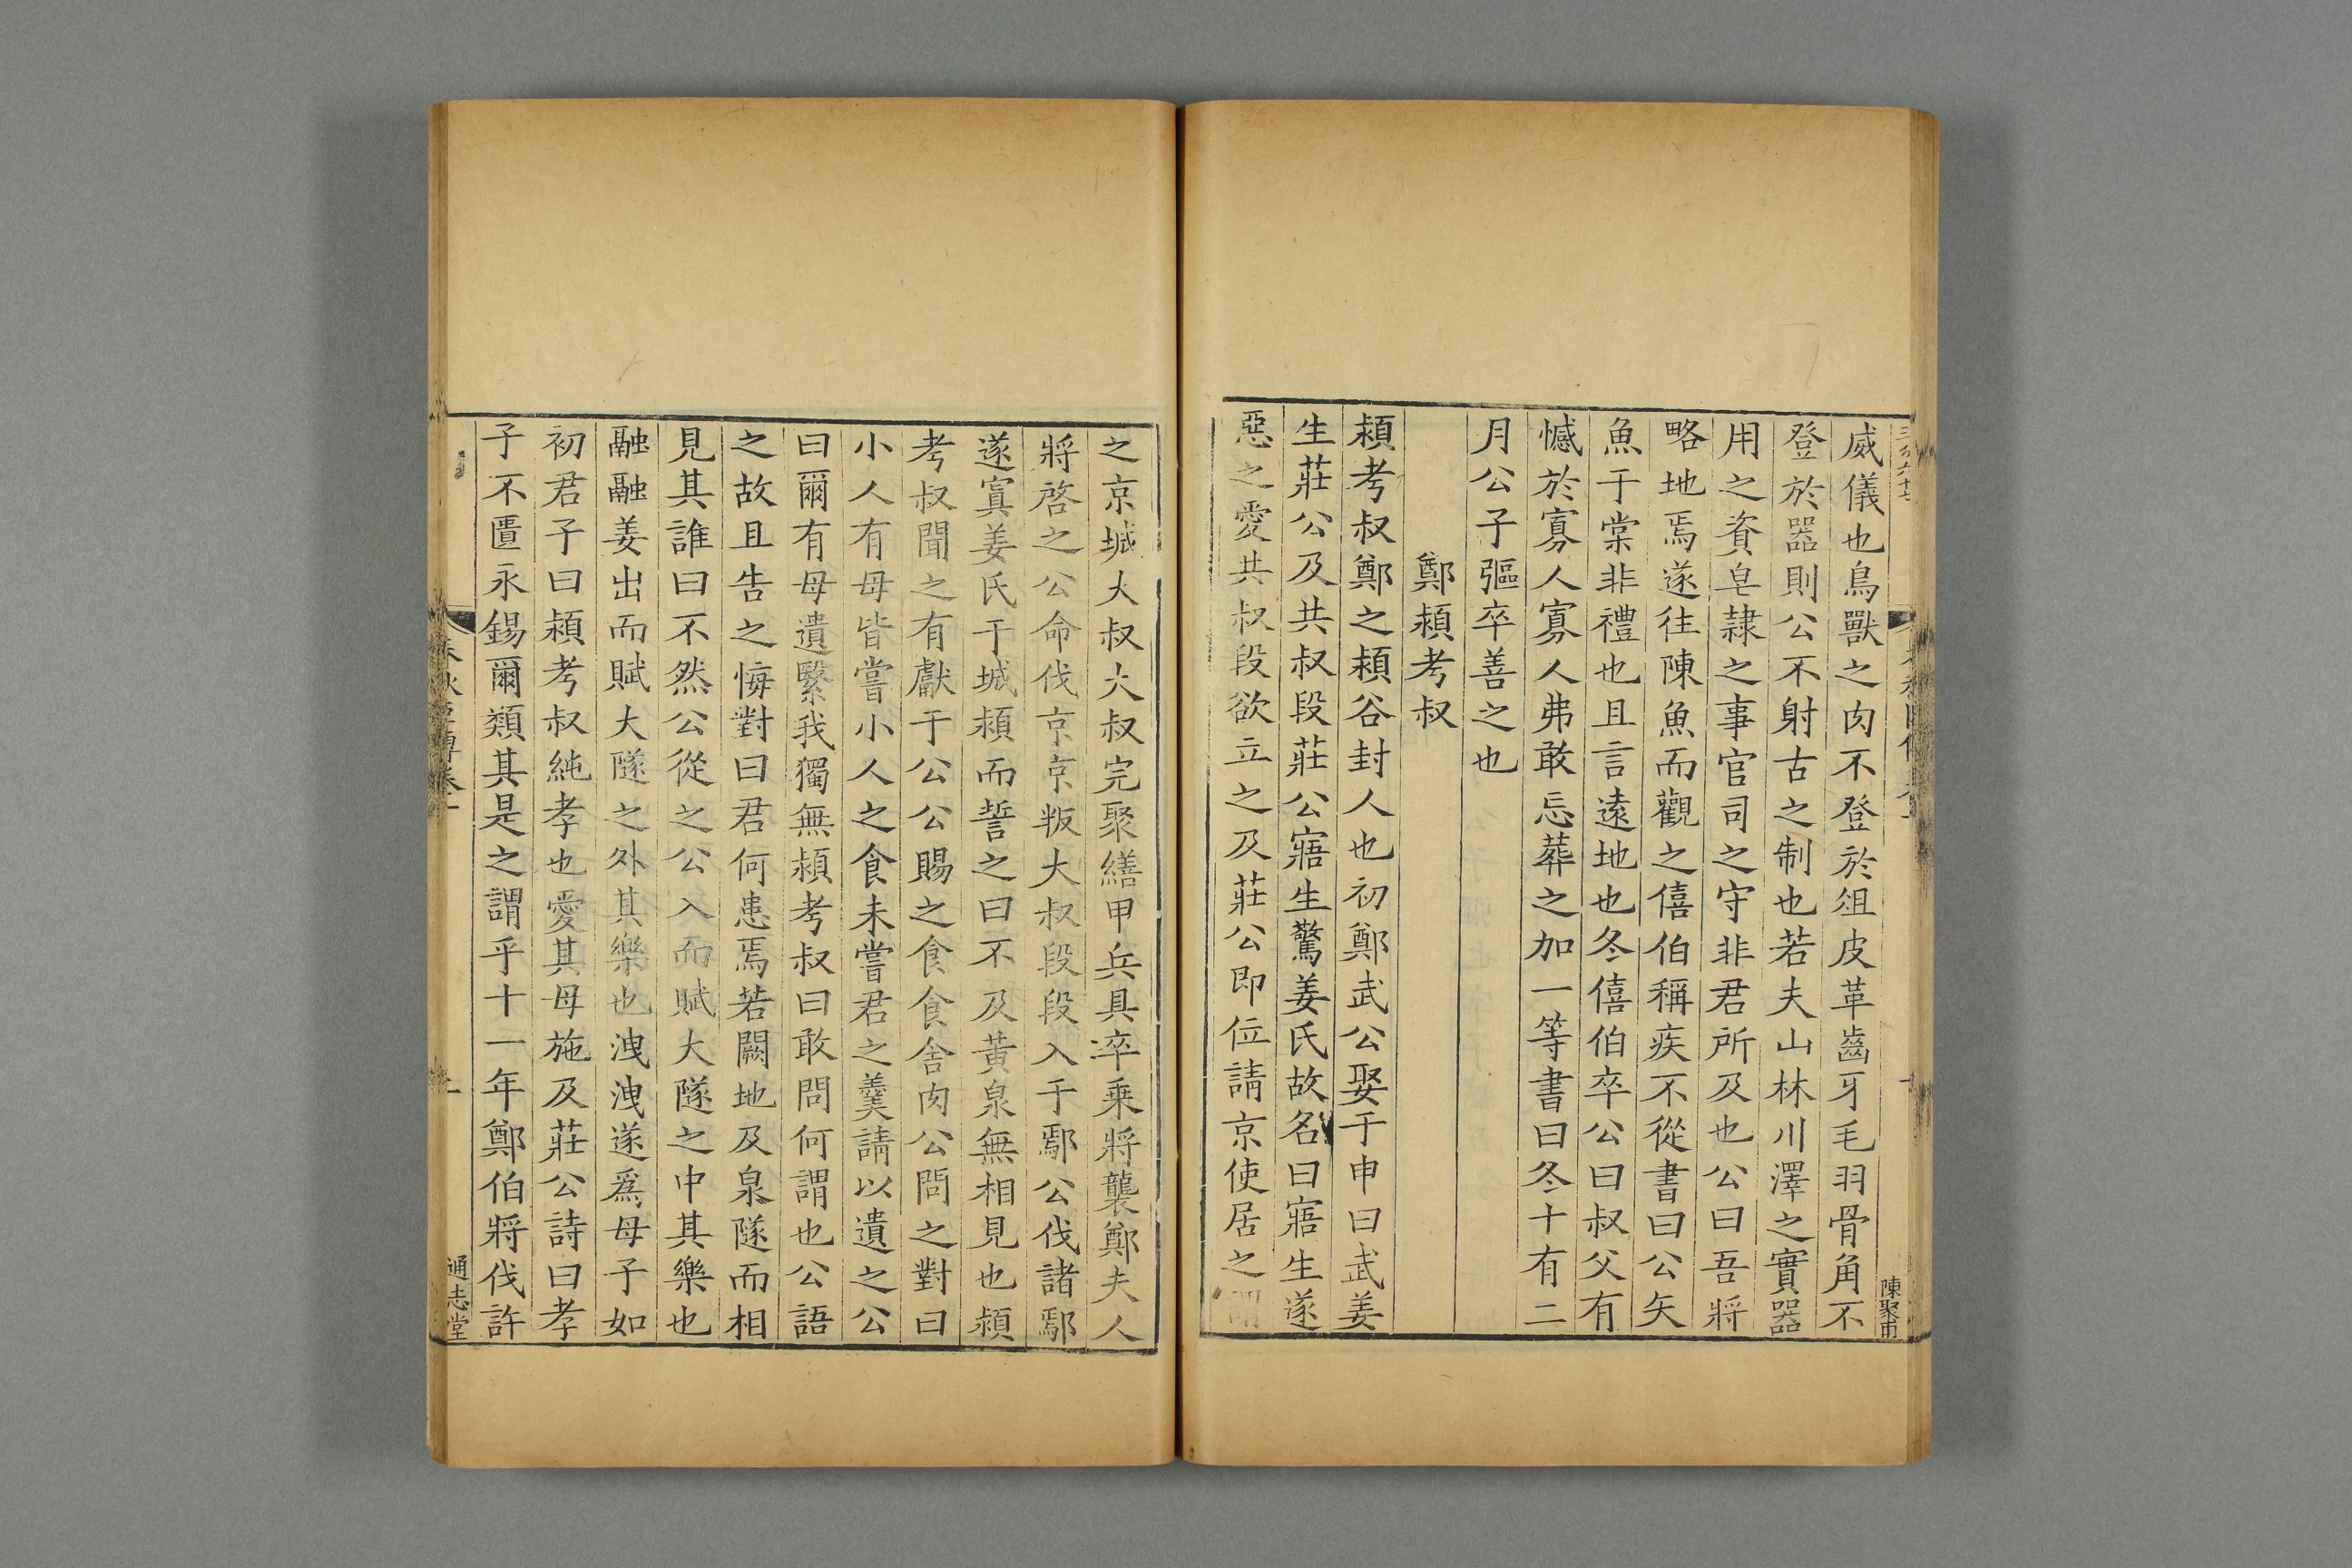 威儀也鳥獸之肉不登於俎皮革齒牙毛羽骨角不
登於器則公不射古之制也若夫山林川澤之實器
用之資皁隷之事官司之守非君所及也公曰吾將
略地焉遂往陳魚而觀之僖伯稱疾不從書曰公矢
魚于棠非禮也且言遠地也冬僖伯卒公曰叔父有
憾於寡人寡人弗敢忘葬之加一等書曰冬十有二
月公子彄卒善之也
鄭潁考叔
潁考叔鄭之潁谷封人也初鄭武公娶于申曰武姜
生莊公及共叔段莊公寤生驚姜氏故名曰寤生遂
惡之愛共叔段欲立之及莊公即位請京使居之謂
陳聚甫
之京城大叔大叔完聚繕甲兵具卒乗將襲鄭夫人
將啓之公命伐京京叛大叔段段入于鄢公伐諸鄢
遂寘姜氏于城潁而誓之曰不及黃泉無相見也潁
考叔聞之有獻于公公賜之食食舍肉公問之對曰
小人有母皆嘗小人之食未嘗君之羹請以遺之公
曰爾有母遺繄我獨無潁考叔曰敢問何謂也公語
之故且告之悔對曰君何患焉若闕地及泉隧而相
見其誰曰不然公從之公入而賦大隧之中其樂也
融融姜出而賦大隧之外其樂也洩洩遂爲母子如
初君子曰潁考叔純孝也愛其母施及莊公詩曰孝
子不匱永錫爾類其是之謂乎十一年鄭伯將伐許
通志堂